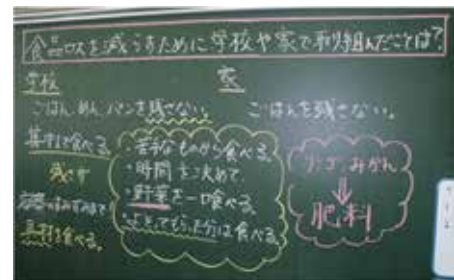 食品ロスを減らすために学校や家で取り組んだことは?
学校
ごはん、めん、パンを残さない。
集中して食べる。
残さず
食べる。
・苦手なものから食べる。
・時間を決めて、
・野菜を一口食べる。
・よそってもらった分は食べる。
家
ごはんを残さない。
リンゴ、みかん
⇓
肥料